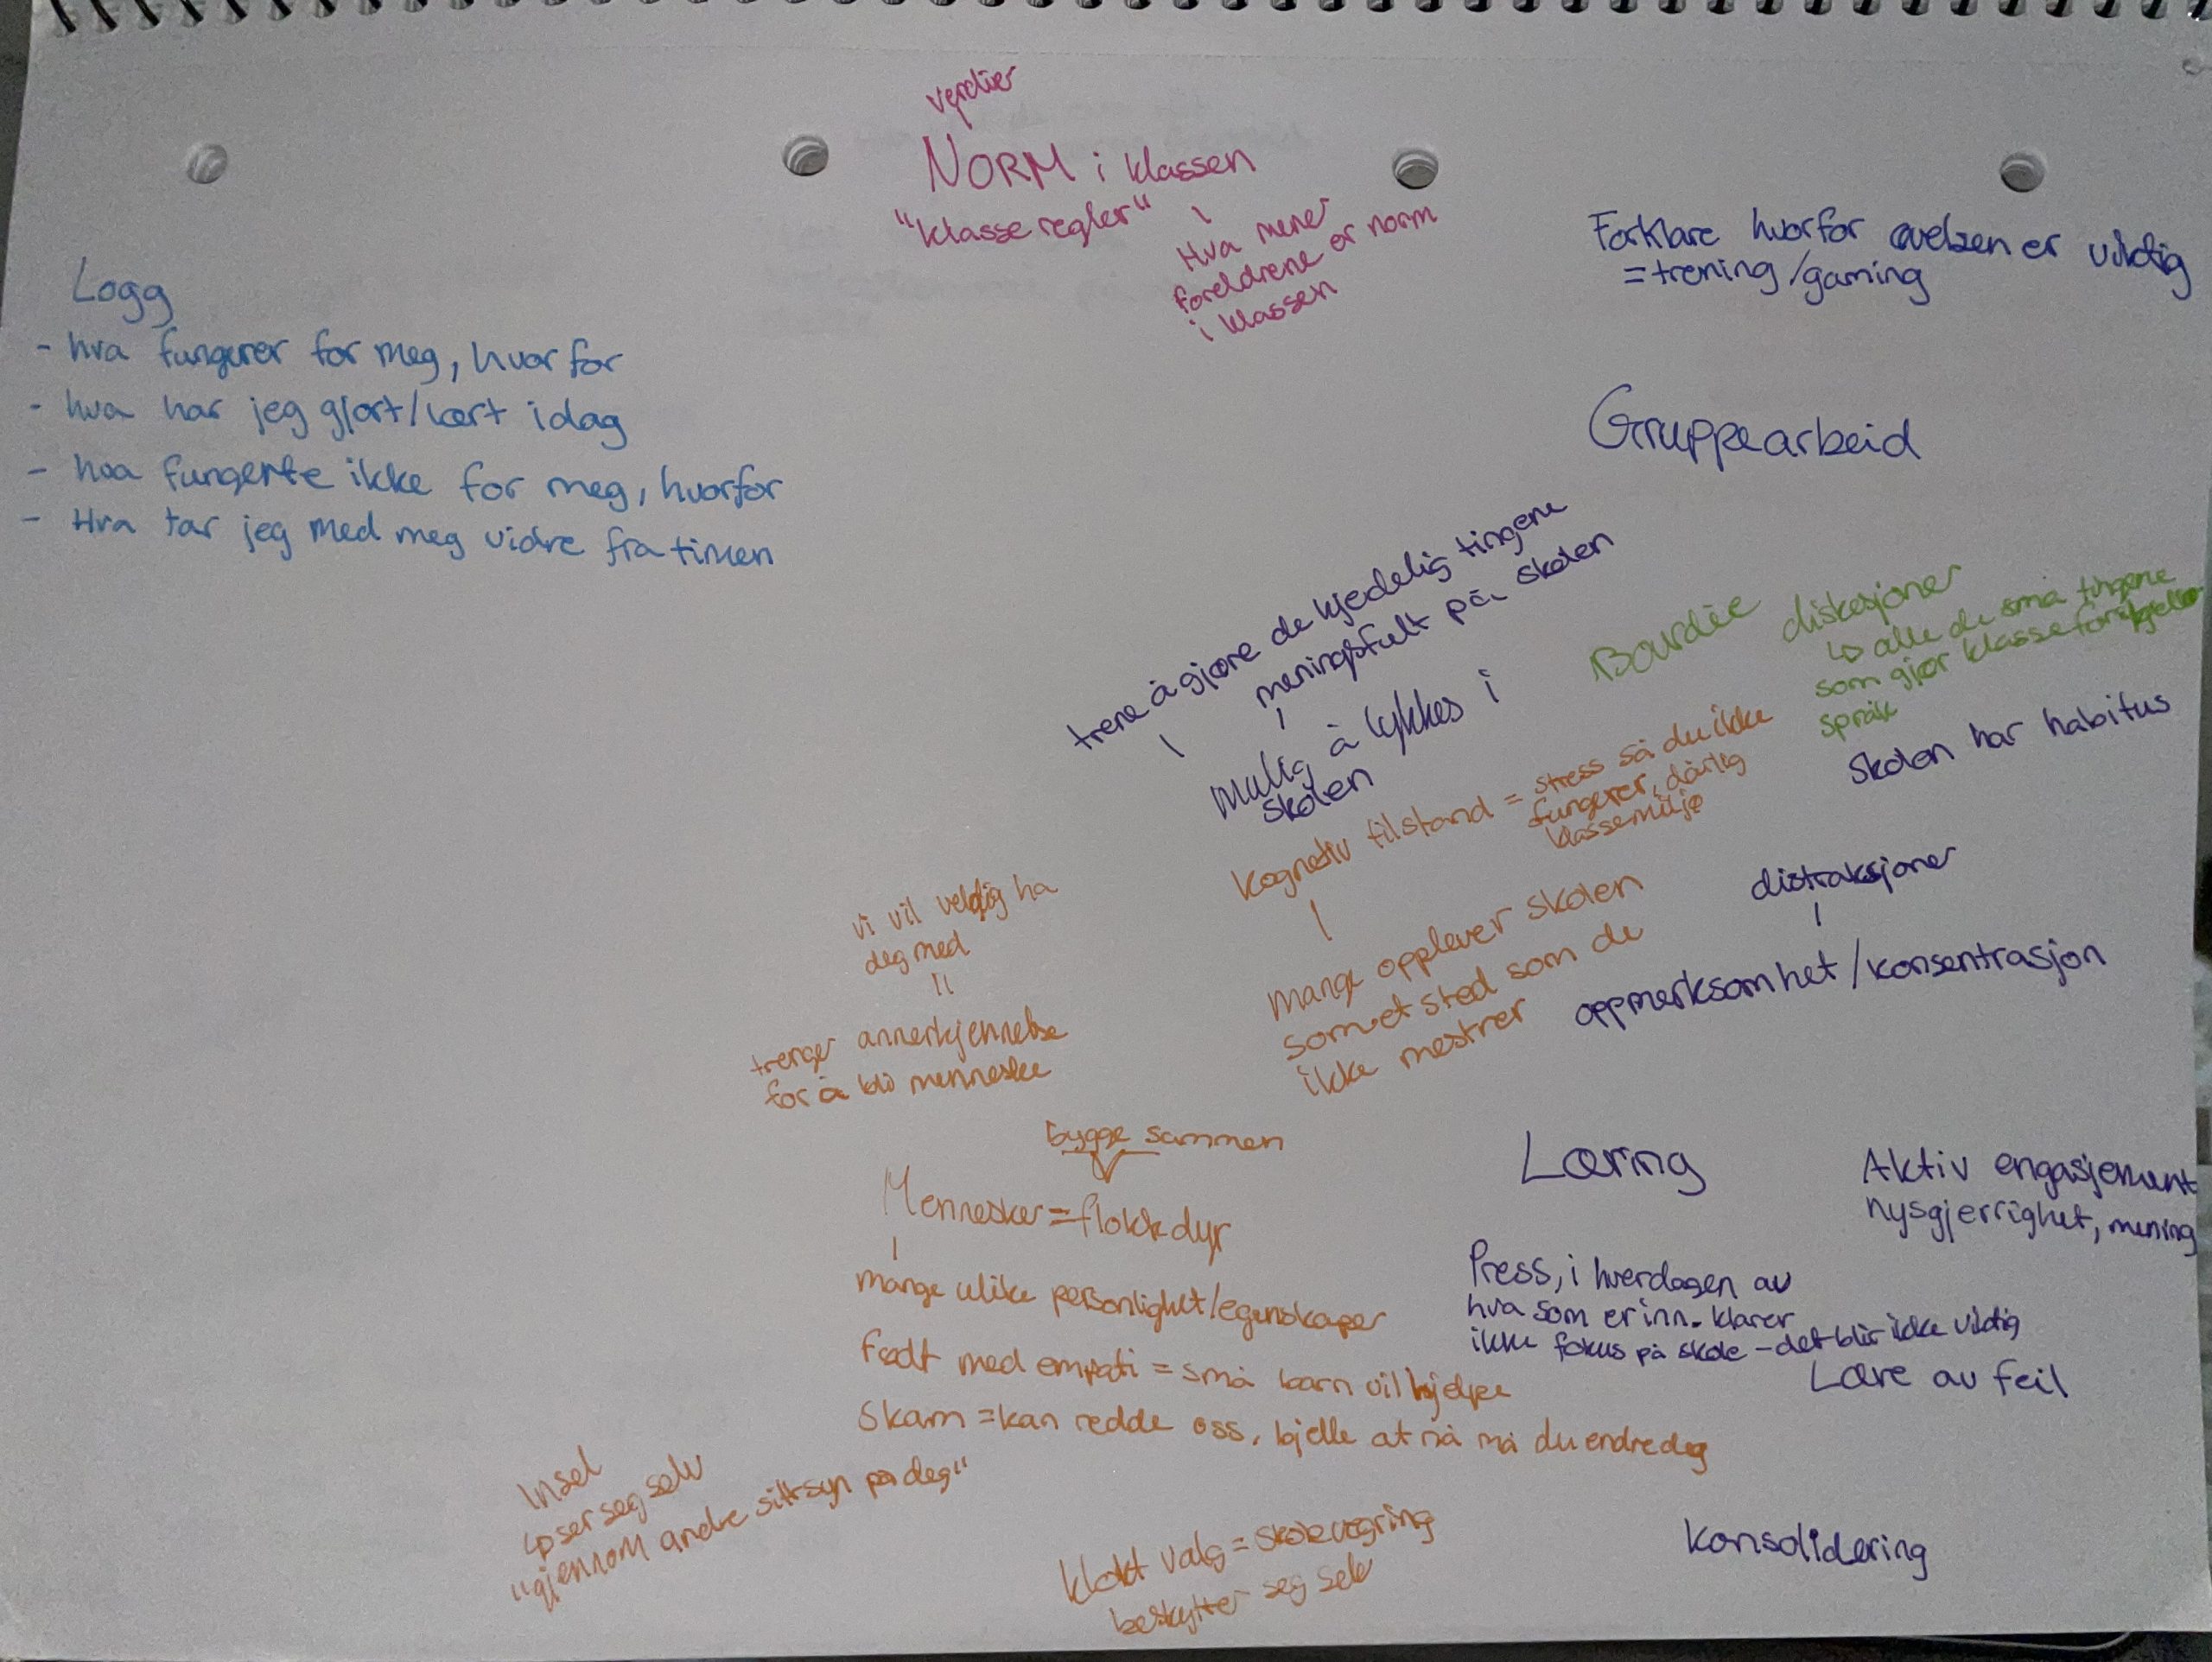 verdier
NORM i klassen
"klasse regler"
Hva mener
foreldrene er norm
i klassen
Logg
- hva fungerer for meg, hvorfor
- hva har jeg gjort/lært idag
- hva fungerte ikke for meg, hvorfor
- Hva tar jeg med meg vidre fra timen
Forklare hvorfor øvelsen er viktig
= trening/gaming
Gruppearbeid
trene å gjøre de kjedelig tingene
meningsfult på skolen
mulig å lykkes i
skolen
Bourdie
diskesjoner
↳ alle de små tingene
som gjør klasseforskjeller
språk
Skolen har habitus
Kognetiv tilstand = stress så du ikke
fungerer, dårlig
klassemiljø
mange opplever skolen
som et sted som de
ikke mestrer
distraksjoner
oppmerksomhet/konsentrasjon
vi vil veldig ha
deg med
=
trenger annerkjennelse
for å bli menneske
bygge sammen
Mennesker = flokkdyr
mange ulike personlighet/egenskaper
født med empati = små barn vil hjelpe
Skam = kan redde oss, bjelle at nå må du endre deg
Læring
Aktiv engasjement
nysgjerrighet, mening
Press, i hverdagen av
hva som er inn. klarer
ikke fokus på skole - det blir ikke viktig
Lære av feil
Insel
↳ ser seg selv
"gjennom andre sitt syn på deg"
klokt valg = skolevegring
beskytter seg selv
Konsolidering